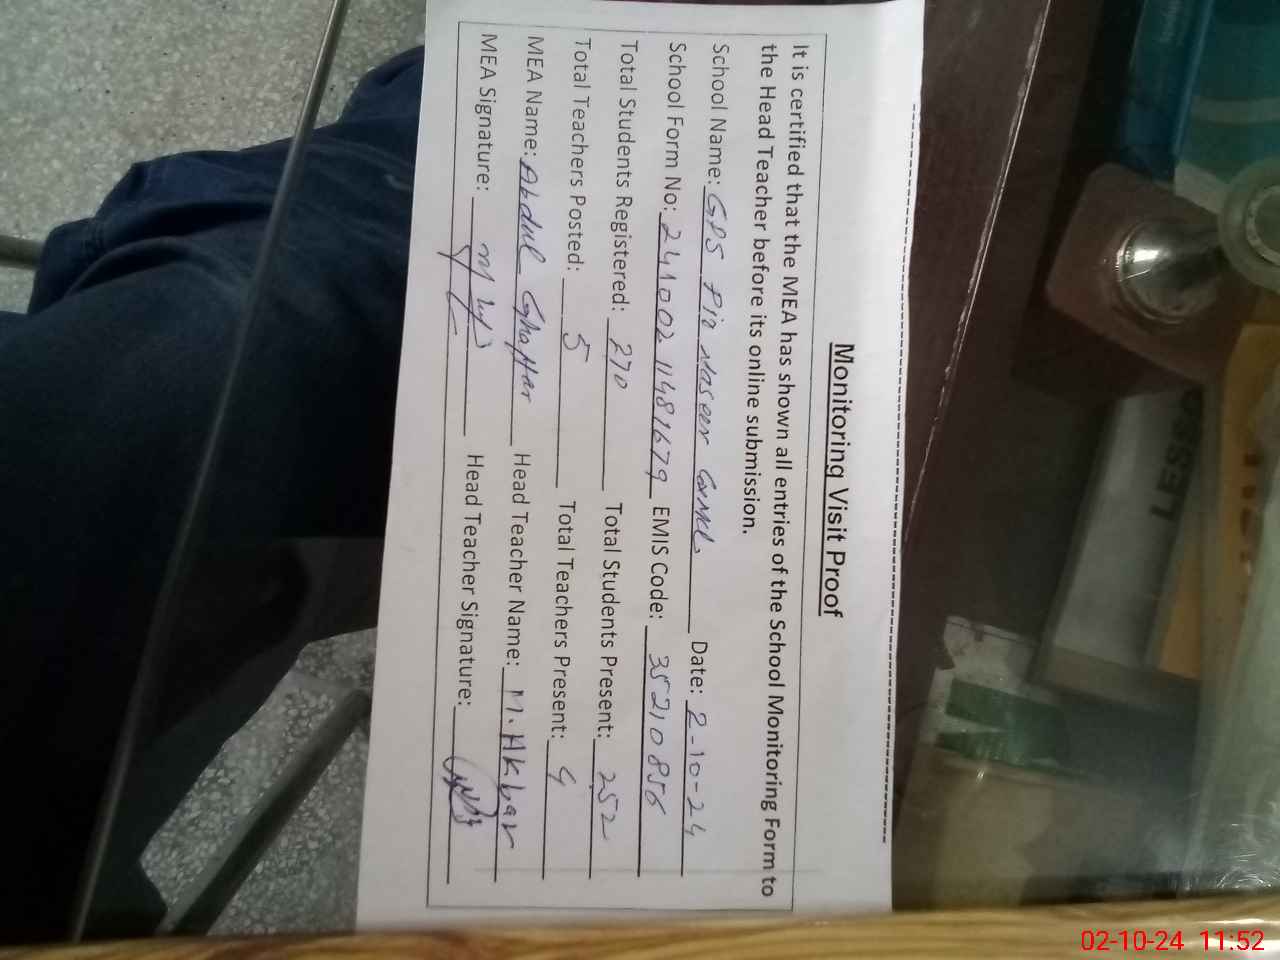 Monitoring Visit Proof
It is certified that the MEA has shown all entries of the School Monitoring Form to
the Head Teacher before its online submission.
School Name: GPS Pir Naseer Date: 2-10-24
School Form No: 24100211481679 EMIS Code: 35210856
Total Students Registered: 270 Total Students Present: 252
Total Teachers Posted: 5 Total Teachers Present: 4
MEA Name: Abdul Ghaffar Head Teacher Name: M. Akbar
MEA Signature: Head Teacher Signature:
02-10-24 11:52